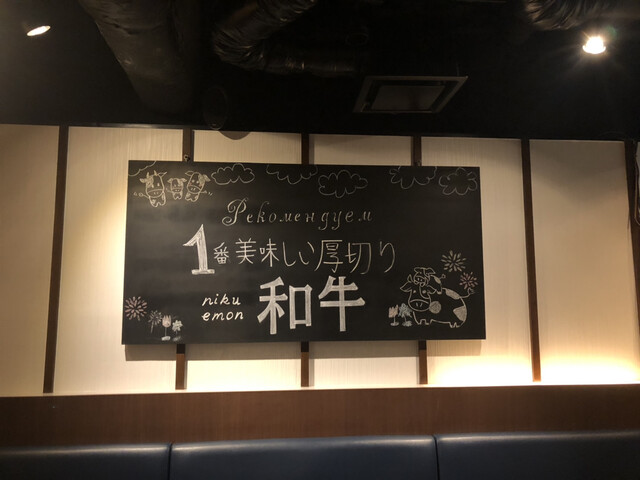 Рекомендуем
1番美味しい厚切り
niku
emon
和牛